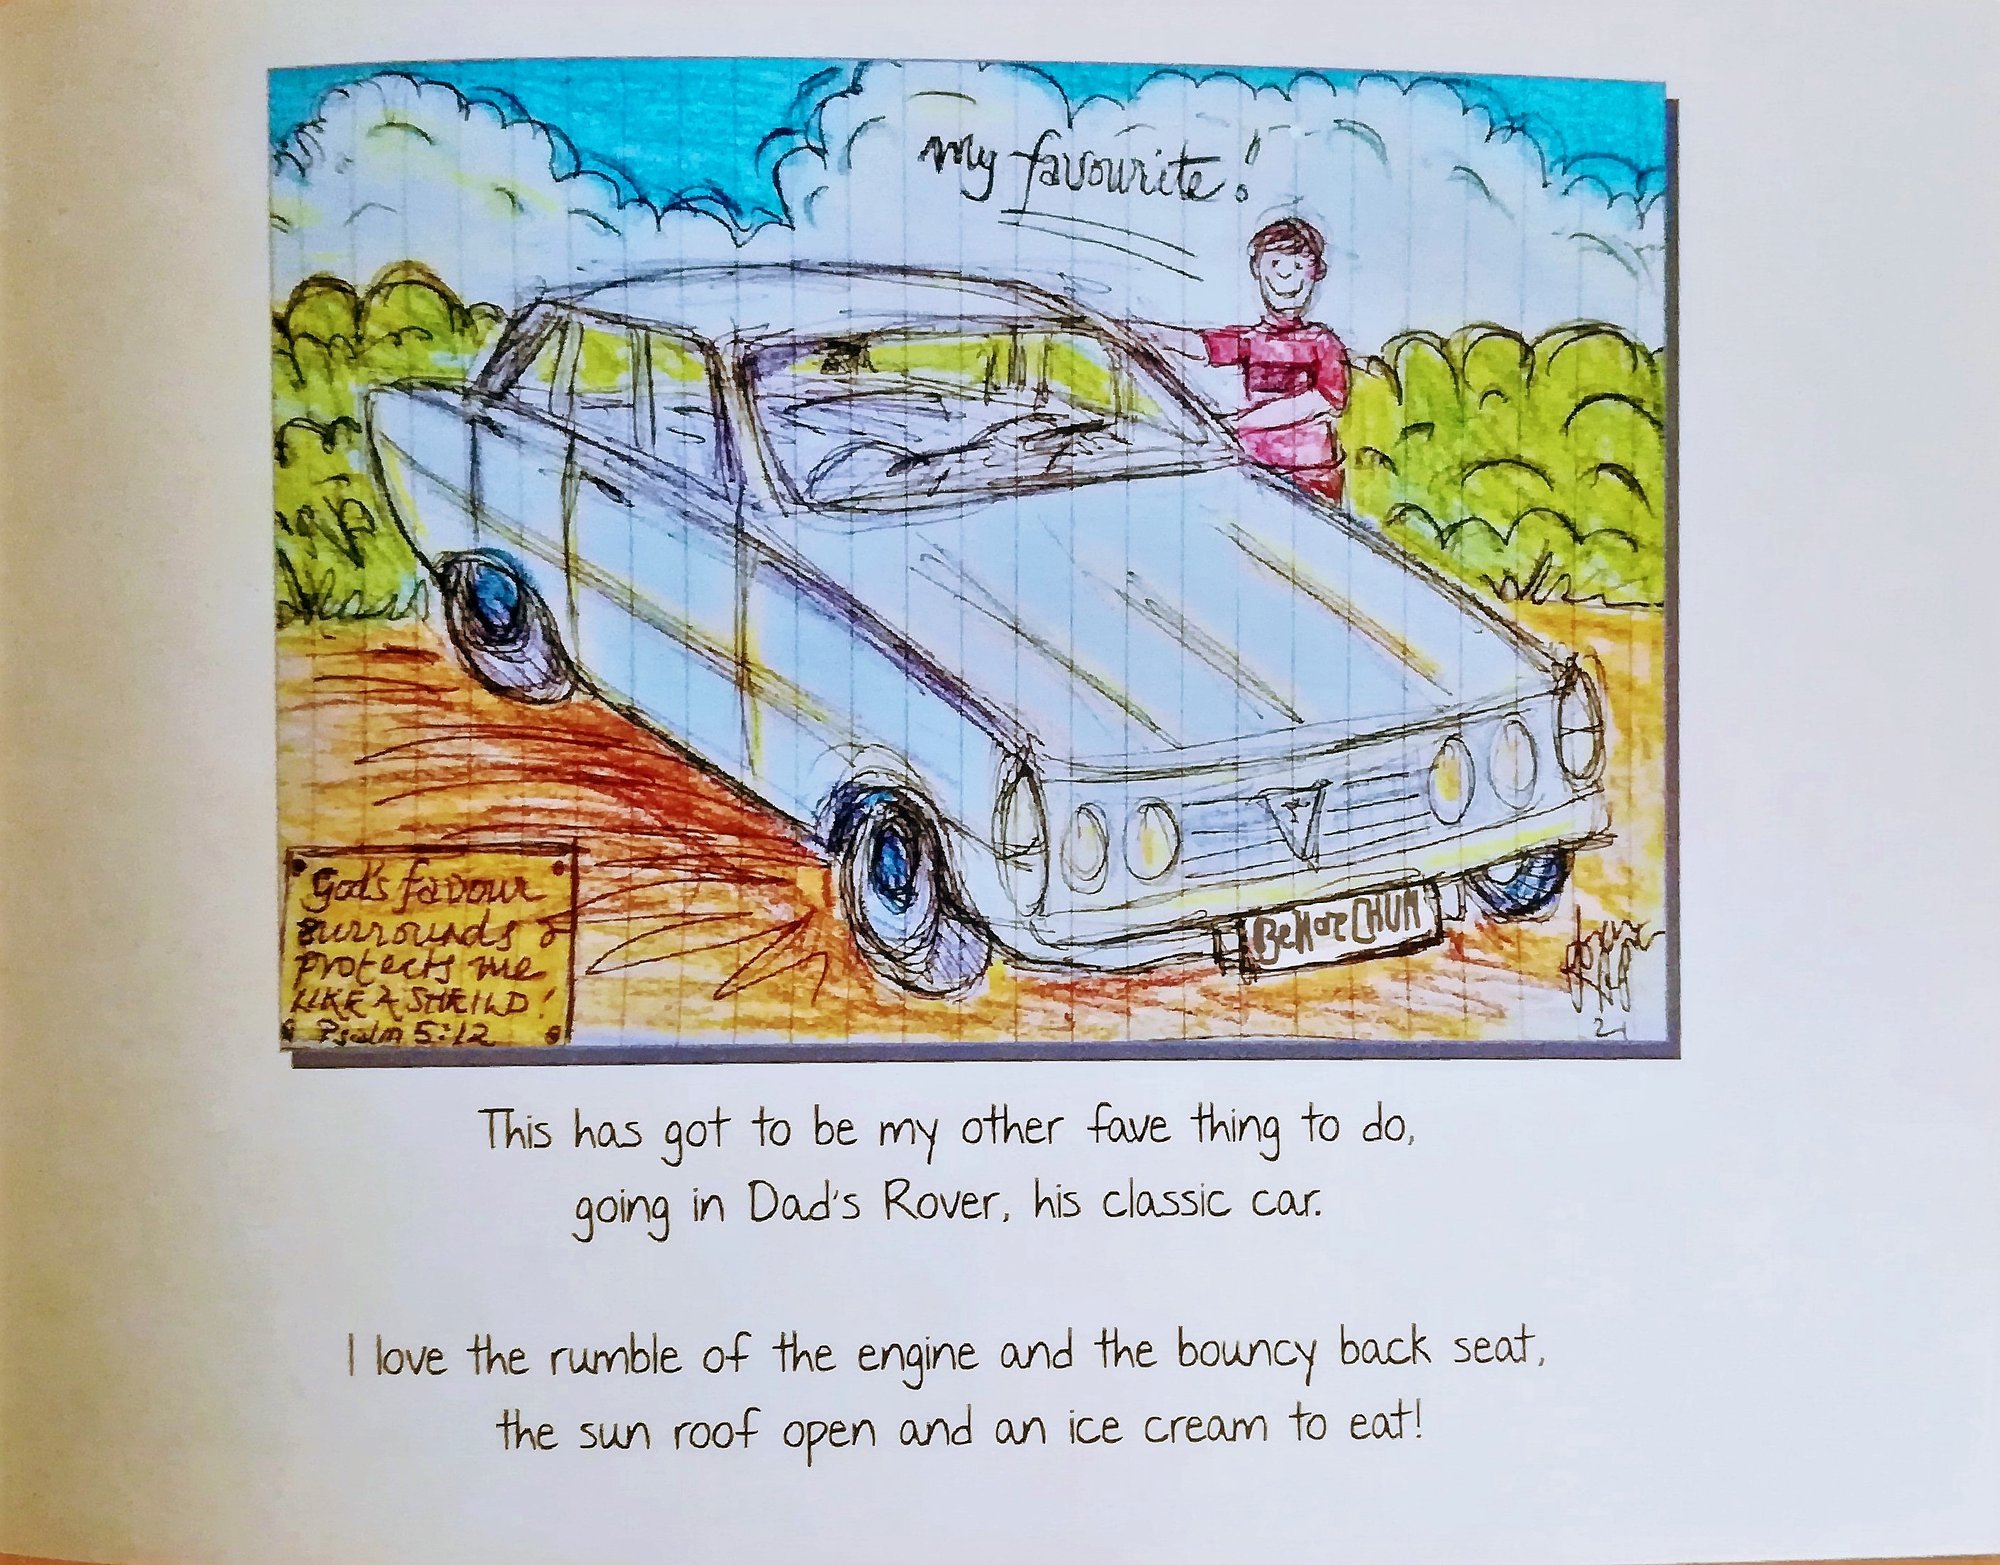 my favourite!
God's favour
surrounds &
protects me
LIKE A SHEILD!
Psalm 5:12
Be More CHUM
21
This has got to be my other fave thing to do,
going in Dad's Rover, his classic car.
I love the rumble of the engine and the bouncy back seat,
the sun roof open and an ice cream to eat!